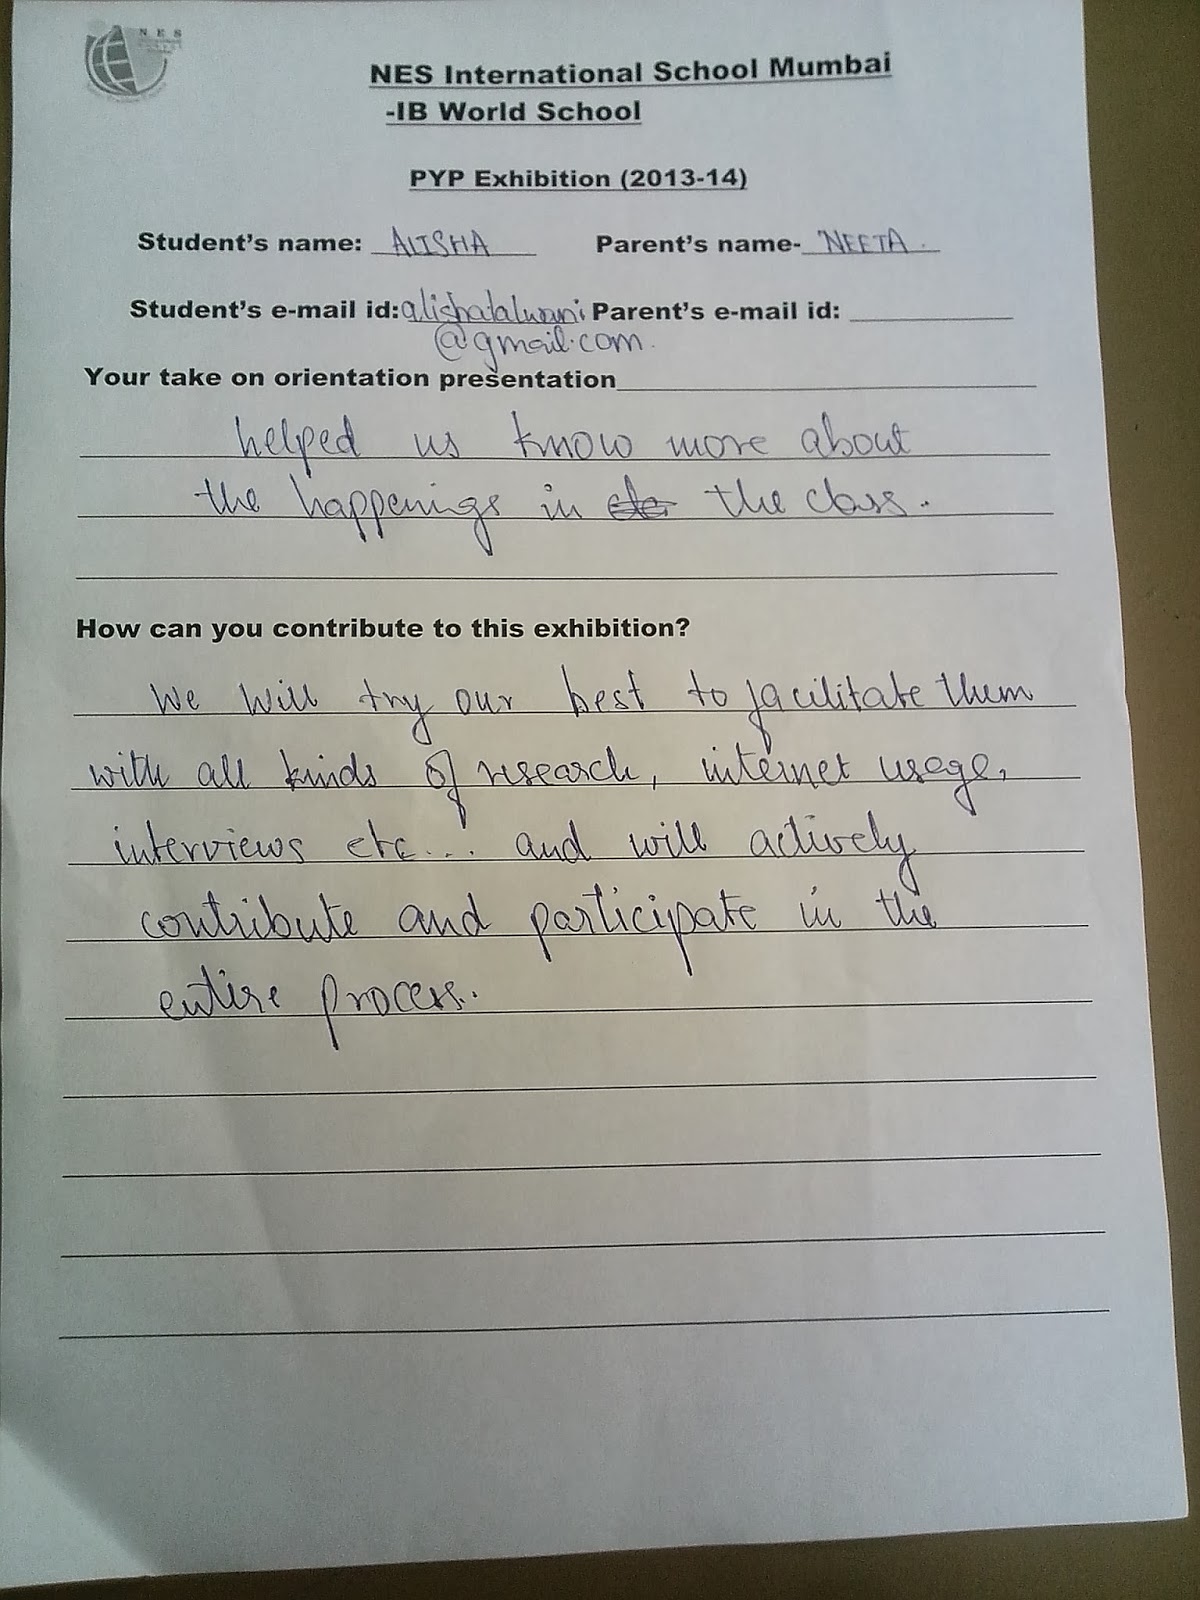 N E S
NES International School Mumbai
-IB World School
PYP Exhibition (2013-14)
Student's name: ALISHA Parent's name- NEETA.
Student's e-mail id: alishatalwani Parent's e-mail id:
@gmail.com.
Your take on orientation presentation
helped us know more about
the happenings in the class.
How can you contribute to this exhibition?
We will try our best to facilitate them
with all kinds of research, internet usege,
interviews etc... and will actively
contribute and participate in the
entire process.